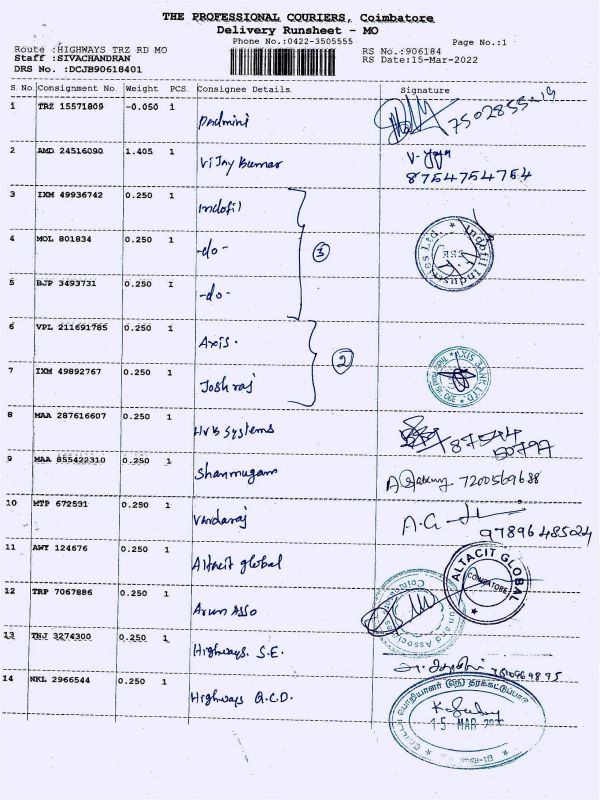 THE PROFESSIONAL COURIERS, Coimbatore
Delivery Runsheet - MO
Phone No.:0422-3505555
Page No.:1
Route :HIGHWAYS TRZ RD MO
RS No.:906184
Staff :SIVACHANDRAN
RS Date:15-Mar-2022
DRS No. :DCJB90618401
S No Consignment No Weight PCS Consignee Details Signature
1 TRZ 15571809 -0.050 1 Padmini 7502855219
2 AMD 24516090 1.405 1 Vijay Kumar V. 8754754754
3 IXM 49936742 0.250 1 Indofil
4 MOL 801834 0.250 1 -do- 3 Indofil Industries Ltd.
5 BJP 3493731 0.250 1 -do-
6 VPL 211691785 0.250 1 Axis. 2
7 IXM 49892767 0.250 1 Joshraj AXIS BANK LTD
8 MAA 287616607 0.250 1 HVB Systems 87544 50797
9 MAA 855422310 0.250 1 Shanmugam 7200569688
10 MTP 672531 0.250 1 Vardaraj A.G 9789648502
11 AWY 124676 0.250 1 Altacit global ALTACIT GLOBAL COIMBATORE
12 TRP 7067886 0.250 1 Arun Asso
13 TNJ 3274300 0.250 1 Highways. S.E.
14 NKL 2966544 0.250 1 Highways Q.C.D. 15 MAR